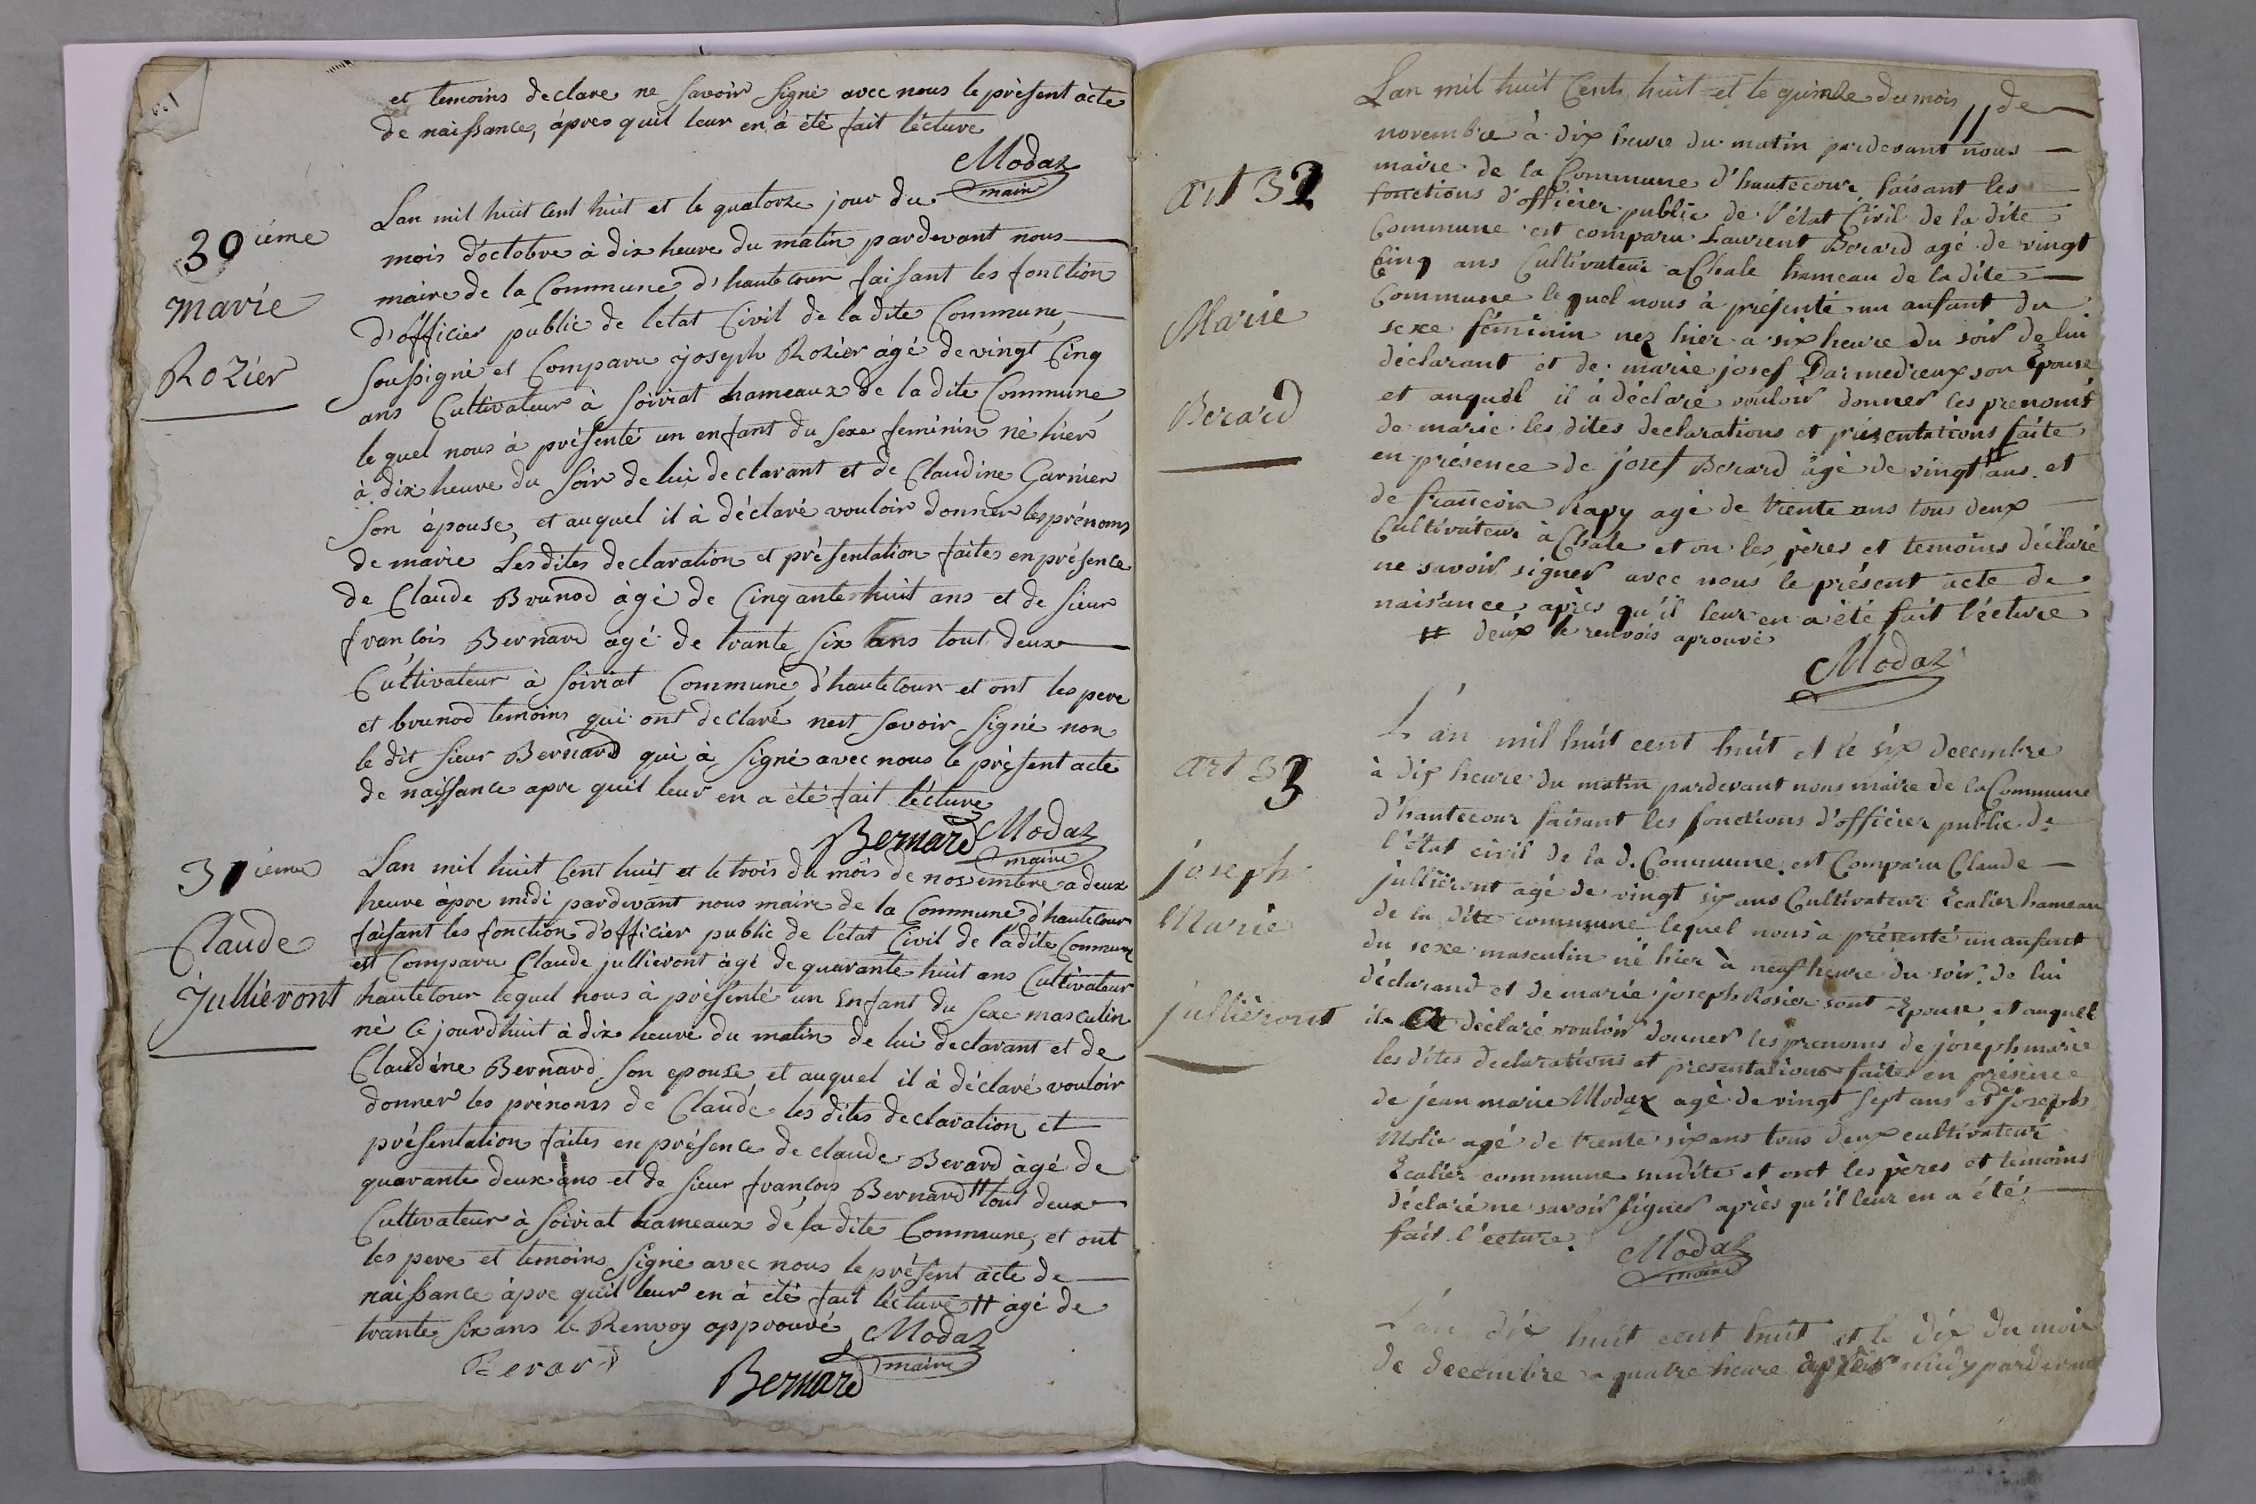 et temoins declare ne savoir signé avec nous le présent acte
de naissance, àpres quil leur en à été fait lécture
Modaz
maire
30 iéme
marie
Rozier
Lan mil huit cent huit et le quatorze jour du
mois d'octobre à dix heure du matin pardevant nous
maire de la Commune d'hautecour faisant les fonction
d'officier public de létat Civil de la dite Commune
soussigné et Comparu joseph Rozier àgé de vingt Cinq
ans Cultivateur à soiriat hameaux de la dite Commune
le quel nous à présenté un enfant du sexe feminin né hier
à dix heure du soir de lui declarant et de Claudine Garnier
son épouse, et auquel il à déclaré vouloir donner les prénoms
de marie Les dites declaration et présentation faites en présence
de Claude Brunod àgé de Cinquante huit ans et de sieur
françois Bernard agé de trante six ans tout deux
Cultivateur à soiriat Commune d'hautecour et ont les pere
et brunod temoins qui ont declaré nest savoir signé non
le dit sieur Bernard qui à signé avec nous le présent acte
de naissance apre quil leur en a été fait lécture
Bernard Modaz
maire
31 iéme
Claude
Jullieront
Lan mil huit Cent huit et le trois du mois de novembre a deux
heure àpre midi pardevant nous maire de la Commune d'hautecour
faisant les fonction d'officier public de létat Civil de la dite Commune
est Comparu Claude jullieront àgé de quarante huit ans Cultivateur
hautecour lequel nous à présenté un Enfant du sexe masculin
né Ce jourdhuit à dix heure du matin de lui declarant et de
Claudine Bernard son epouse et auquel il à déclaré vouloir
donner les prénoms de Claude les dites declaration et
présentation faites en présence de claude Berard àgé de
quarante deux ans et de sieur françois Bernard # tout deux
Cultivateur à soiriat hameaux de la dite Commune, et ont
les pere et temoins signé avec nous le présent acte de
naissance àpre quil leur en à été fait lécture # àgé de
trante six ans le Renvoy approuvé Modaz
maire
Berard
Bernard
art 32
Marie
Berard
Lan mil huit Cents huit et le quinze du mois // de
novembre à dix heure du matin pardevant nous
maire de la Commune d'hautecour faisant les
fonctions d'officier public de l'état Civil de la dite
Commune est comparu Laurent Berard agé de vingt
Cinq ans Cultivateur a Chale hameau de la dite
Commune le quel nous à présenté un anfant du
sexe féminin nez hier a six heure du soir de lui
déclarant et de marie josef Darmedieux son Epouse
et auquel il à déclaré vouloir donner les prenoms
de marie les dites declarations et présentations faite
en présence de josef Berard àgé de vingt ans et
de francois Rapy agé de trente ans tous deux
Cultivateur à Chale et on les pères et temoins déclaré
ne savoir signer avec nous le présent acte de
naisance après qu'il leur en a été fait l'écture
# deux le renvois aprouvé
Modaz
art 33
joseph
Marie
jullieront
L'an mil huit cent huit et le six decembre
à dix heure du matin pardevant nous maire de la Commune
d'hautecour faisant les fonctions d'officier public de
l'état civil de la d. Commune est Comparu Claude
jullieront agé de vingt six ans Cultivateur Ecalier hameau
de la dite commune lequel nous a présenté un anfant
du sexe masculin né hier à neuf heure du soir de lui
déclarant et de marie joseph Rosier sont Epouse et auquel
il a déclaré vouloir donner les prenoms de joseph marie
les dites declarations et presentations faite en présence
de jean marie Modaz agé de vingt sept ans et de joseph
Molie agé de trente six ans tous deux cultivateur
Ecalier commune susdite et ont les pères et temoins
déclaré ne savoir signer après qu'il leur en a été
fait l'écture.
Modaz
maire
L'an dix huit cent huit et le dix du mois
de decembre a quatre heure après midy pardevant